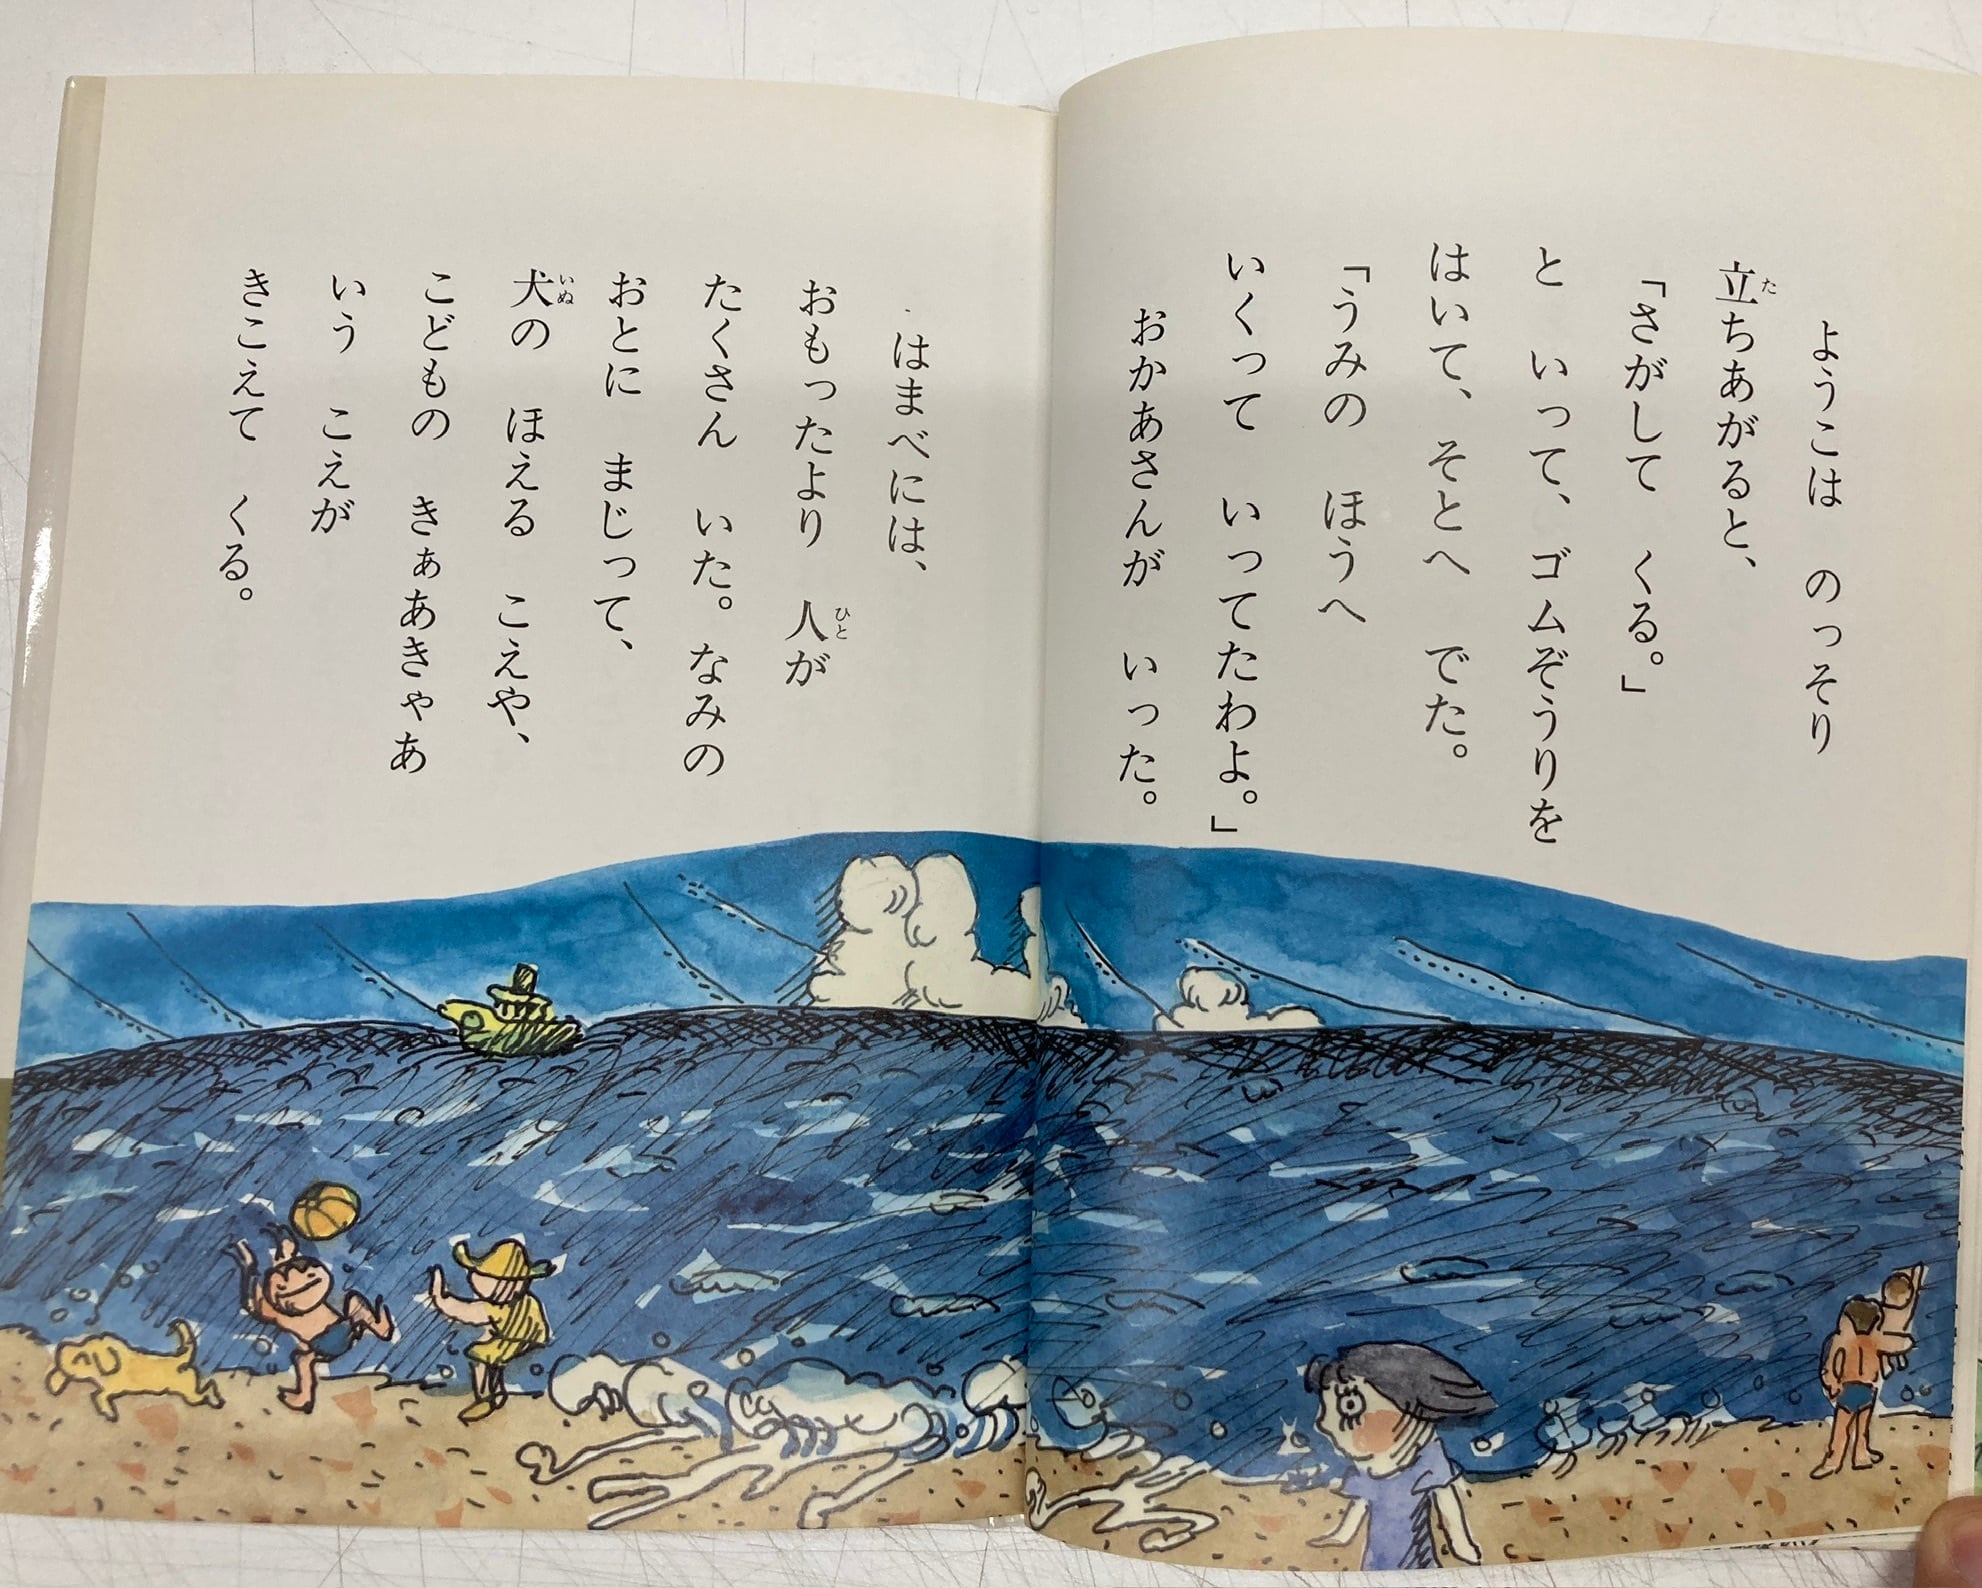 ようこは のっそり
立ちあがると、
「さがして くる。」
と いって、ゴムぞうりを
はいて、そとへ でた。
「うみの ほうへ
いくって いってたわよ。」
おかあさんが いった。
はまべには、
おもったより 人が
たくさん いた。なみの
おとに まじって、
犬の ほえる こえや、
こどもの きぁあきゃあ
いう こえが
きこえて くる。